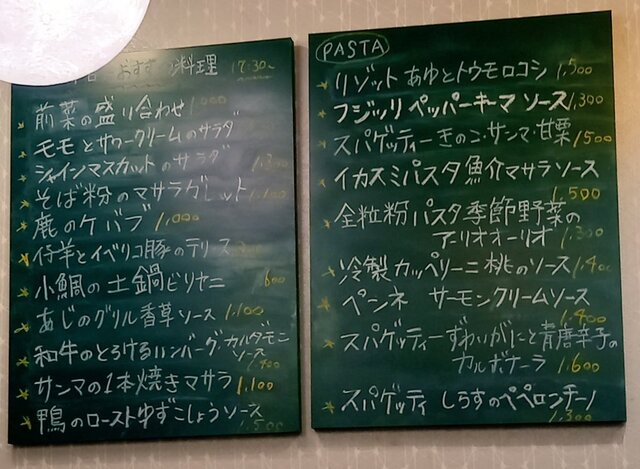 おすすめ料理 17:30〜
前菜の盛り合わせ 1,000
モモとサワークリームのサラダ
シャインマスカットのサラダ 1,300
そば粉のマサラガレット 1,100
鹿のケバブ 1,000
仔羊とイベリコ豚のテリーヌ
小鯛の土鍋ビリヤニ 600
あじのグリル香草ソース 1,100
和牛のとろけるハンバーグ・カルダモン
ソース 1,400
サンマの1本焼きマサラ 1,100
鴨のローストゆずこしょうソース
1,500
PASTA
リゾット あゆとトウモロコシ 1,500
フジッリ ペッパーキーマ ソース 1,300
スパゲッティーきのこ・サンマ・甘栗 1500
イカスミパスタ魚介マサラソース
1,500
全粒粉パスタ季節野菜の
アーリオオーリオ 1,300
冷製カッペリーニ桃のソース 1,400
ペンネ サーモンクリームソース
1,400
スパゲッティーずわいがにと青唐辛子の
カルボナーラ 1,600
スパゲッティ しらすのペペロンチーノ
1,300